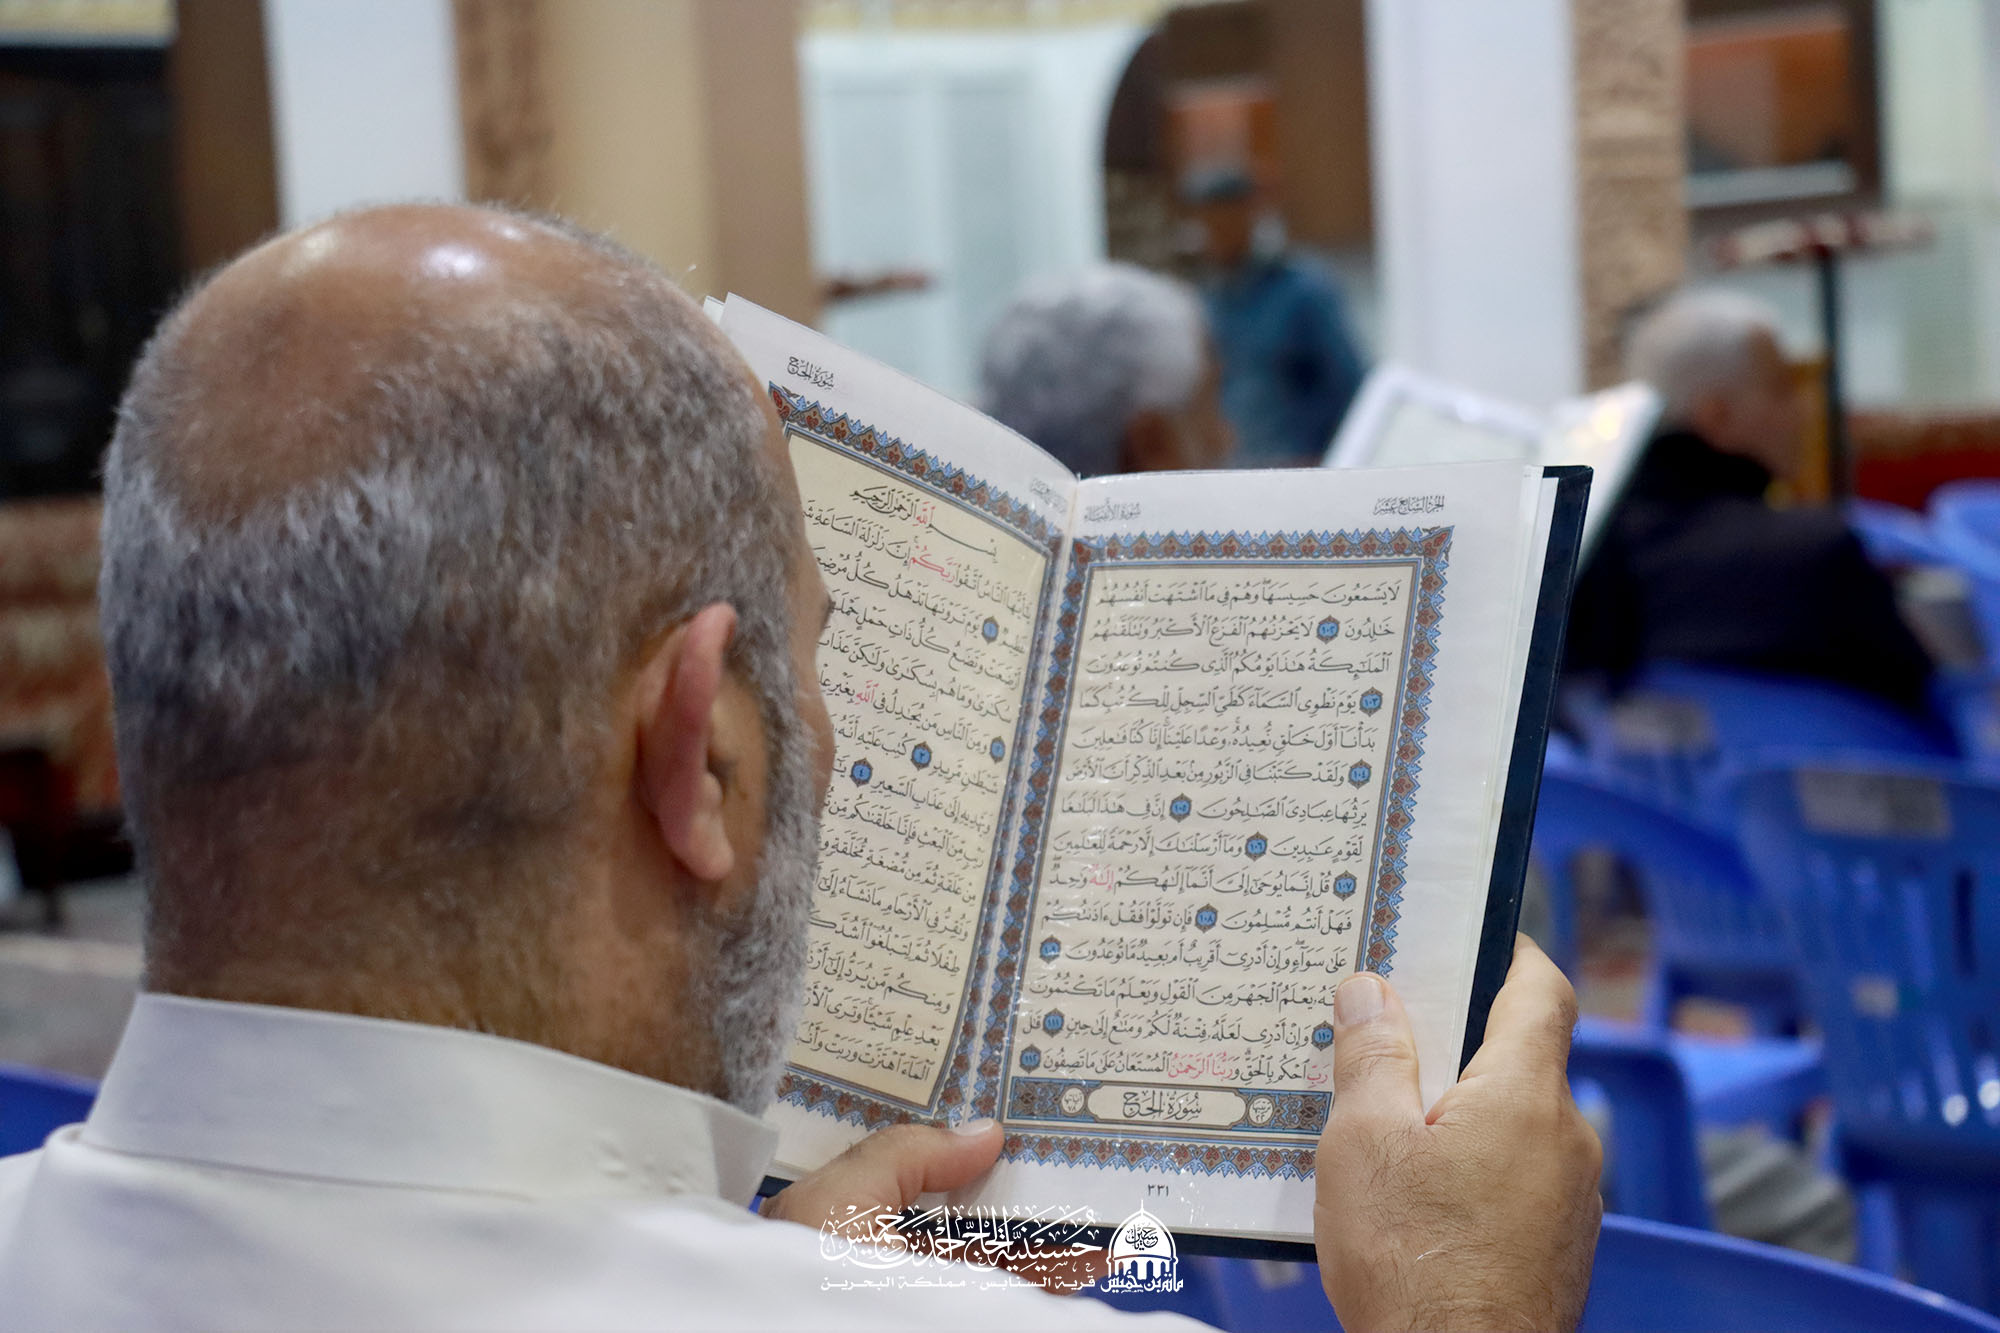 الجزء السابع عشر
سورة الأنبياء
لَا يَسْمَعُونَ حَسِيسَهَا وَهُمْ فِي مَا ٱشْتَهَتْ أَنفُسُهُمْ
خَٰلِدُونَ ١٠٢ لَا يَحْزُنُهُمُ ٱلْفَزَعُ ٱلْأَكْبَرُ وَتَتَلَقَّىٰهُمُ
ٱلْمَلَٰٓئِكَةُ هَٰذَا يَوْمُكُمُ ٱلَّذِي كُنتُمْ تُوعَدُونَ
١٠٣ يَوْمَ نَطْوِي ٱلسَّمَآءَ كَطَيِّ ٱلسِّجِلِّ لِلْكُتُبِ كَمَا
بَدَأْنَآ أَوَّلَ خَلْقٍ نُّعِيدُهُۥ وَعْدًا عَلَيْنَآ إِنَّا كُنَّا فَٰعِلِينَ
١٠٤ وَلَقَدْ كَتَبْنَا فِي ٱلزَّبُورِ مِنۢ بَعْدِ ٱلذِّكْرِ أَنَّ ٱلْأَرْضَ
يَرِثُهَا عِبَادِيَ ٱلصَّٰلِحُونَ ١٠٥ إِنَّ فِي هَٰذَا لَبَلَٰغًا
لِّقَوْمٍ عَٰبِدِينَ ١٠٦ وَمَآ أَرْسَلْنَٰكَ إِلَّا رَحْمَةً لِّلْعَٰلَمِينَ
١٠٧ قُلْ إِنَّمَا يُوحَىٰٓ إِلَيَّ أَنَّمَآ إِلَٰهُكُمْ إِلَٰهٌ وَٰحِدٌ
فَهَلْ أَنتُم مُّسْلِمُونَ ١٠٨ فَإِن تَوَلَّوْا۟ فَقُلْ ءَاذَنتُكُمْ
عَلَىٰ سَوَآءٍ وَإِنْ أَدْرِيٓ أَقَرِيبٌ أَم بَعِيدٌ مَّا تُوعَدُونَ ١٠٩
يَعْلَمُ ٱلْجَهْرَ مِنَ ٱلْقَوْلِ وَيَعْلَمُ مَا تَكْتُمُونَ
١١٠ وَإِنْ أَدْرِي لَعَلَّهُۥ فِتْنَةٌ لَّكُمْ وَمَتَٰعٌ إِلَىٰ حِينٍ ١١١ قَٰلَ
رَبِّ ٱحْكُم بِٱلْحَقِّ وَرَبُّنَا ٱلرَّحْمَٰنُ ٱلْمُسْتَعَانُ عَلَىٰ مَا تَصِفُونَ ١١٢
سورة الحج
٣٣١
سورة الحج
بِسْمِ ٱللَّهِ ٱلرَّحْمَٰنِ ٱلرَّحِيمِ
يَٰٓأَيُّهَا ٱلنَّاسُ ٱتَّقُوا۟ رَبَّكُمْ إِنَّ زَلْزَلَةَ ٱلسَّاعَةِ
عَظِيمٌ ١ يَوْمَ تَرَوْنَهَا تَذْهَلُ كُلُّ مُرْضِعَ
أَرْضَعَتْ وَتَضَعُ كُلُّ ذَاتِ حَمْلٍ حَمْلَهَا
سُكَٰرَىٰ وَمَا هُم بِسُكَٰرَىٰ وَلَٰكِنَّ عَذَابَ
٢ وَمِنَ ٱلنَّاسِ مَن يُجَٰدِلُ فِي ٱللَّهِ بِغَيْرِ
شَيْطَٰنٍ مَّرِيدٍ ٣ كُتِبَ عَلَيْهِ أَنَّهُۥ
وَيَهْدِيهِ إِلَىٰ عَذَابِ ٱلسَّعِيرِ ٤
رَيْبٍ مِّنَ ٱلْبَعْثِ فَإِنَّا خَلَقْنَٰكُم مِّن
مِنْ عَلَقَةٍ ثُمَّ مِن مُّضْغَةٍ مُّخَلَّقَةٍ
وَنُقِرُّ فِي ٱلْأَرْحَامِ مَا نَشَآءُ إِلَىٰٓ
طِفْلًا ثُمَّ لِتَبْلُغُوٓا۟ أَشُدَّكُ
وَمِنكُم مَّن يُرَدُّ إِلَىٰٓ
بَعْدِ عِلْمٍ شَيْـًٔا وَتَرَى
ٱلْمَآءَ ٱهْتَزَّتْ وَرَبَتْ
حسينية الحاج أحمد بن خميس
قرية السنابس - مملكة البحرين
مأتم بن خميس